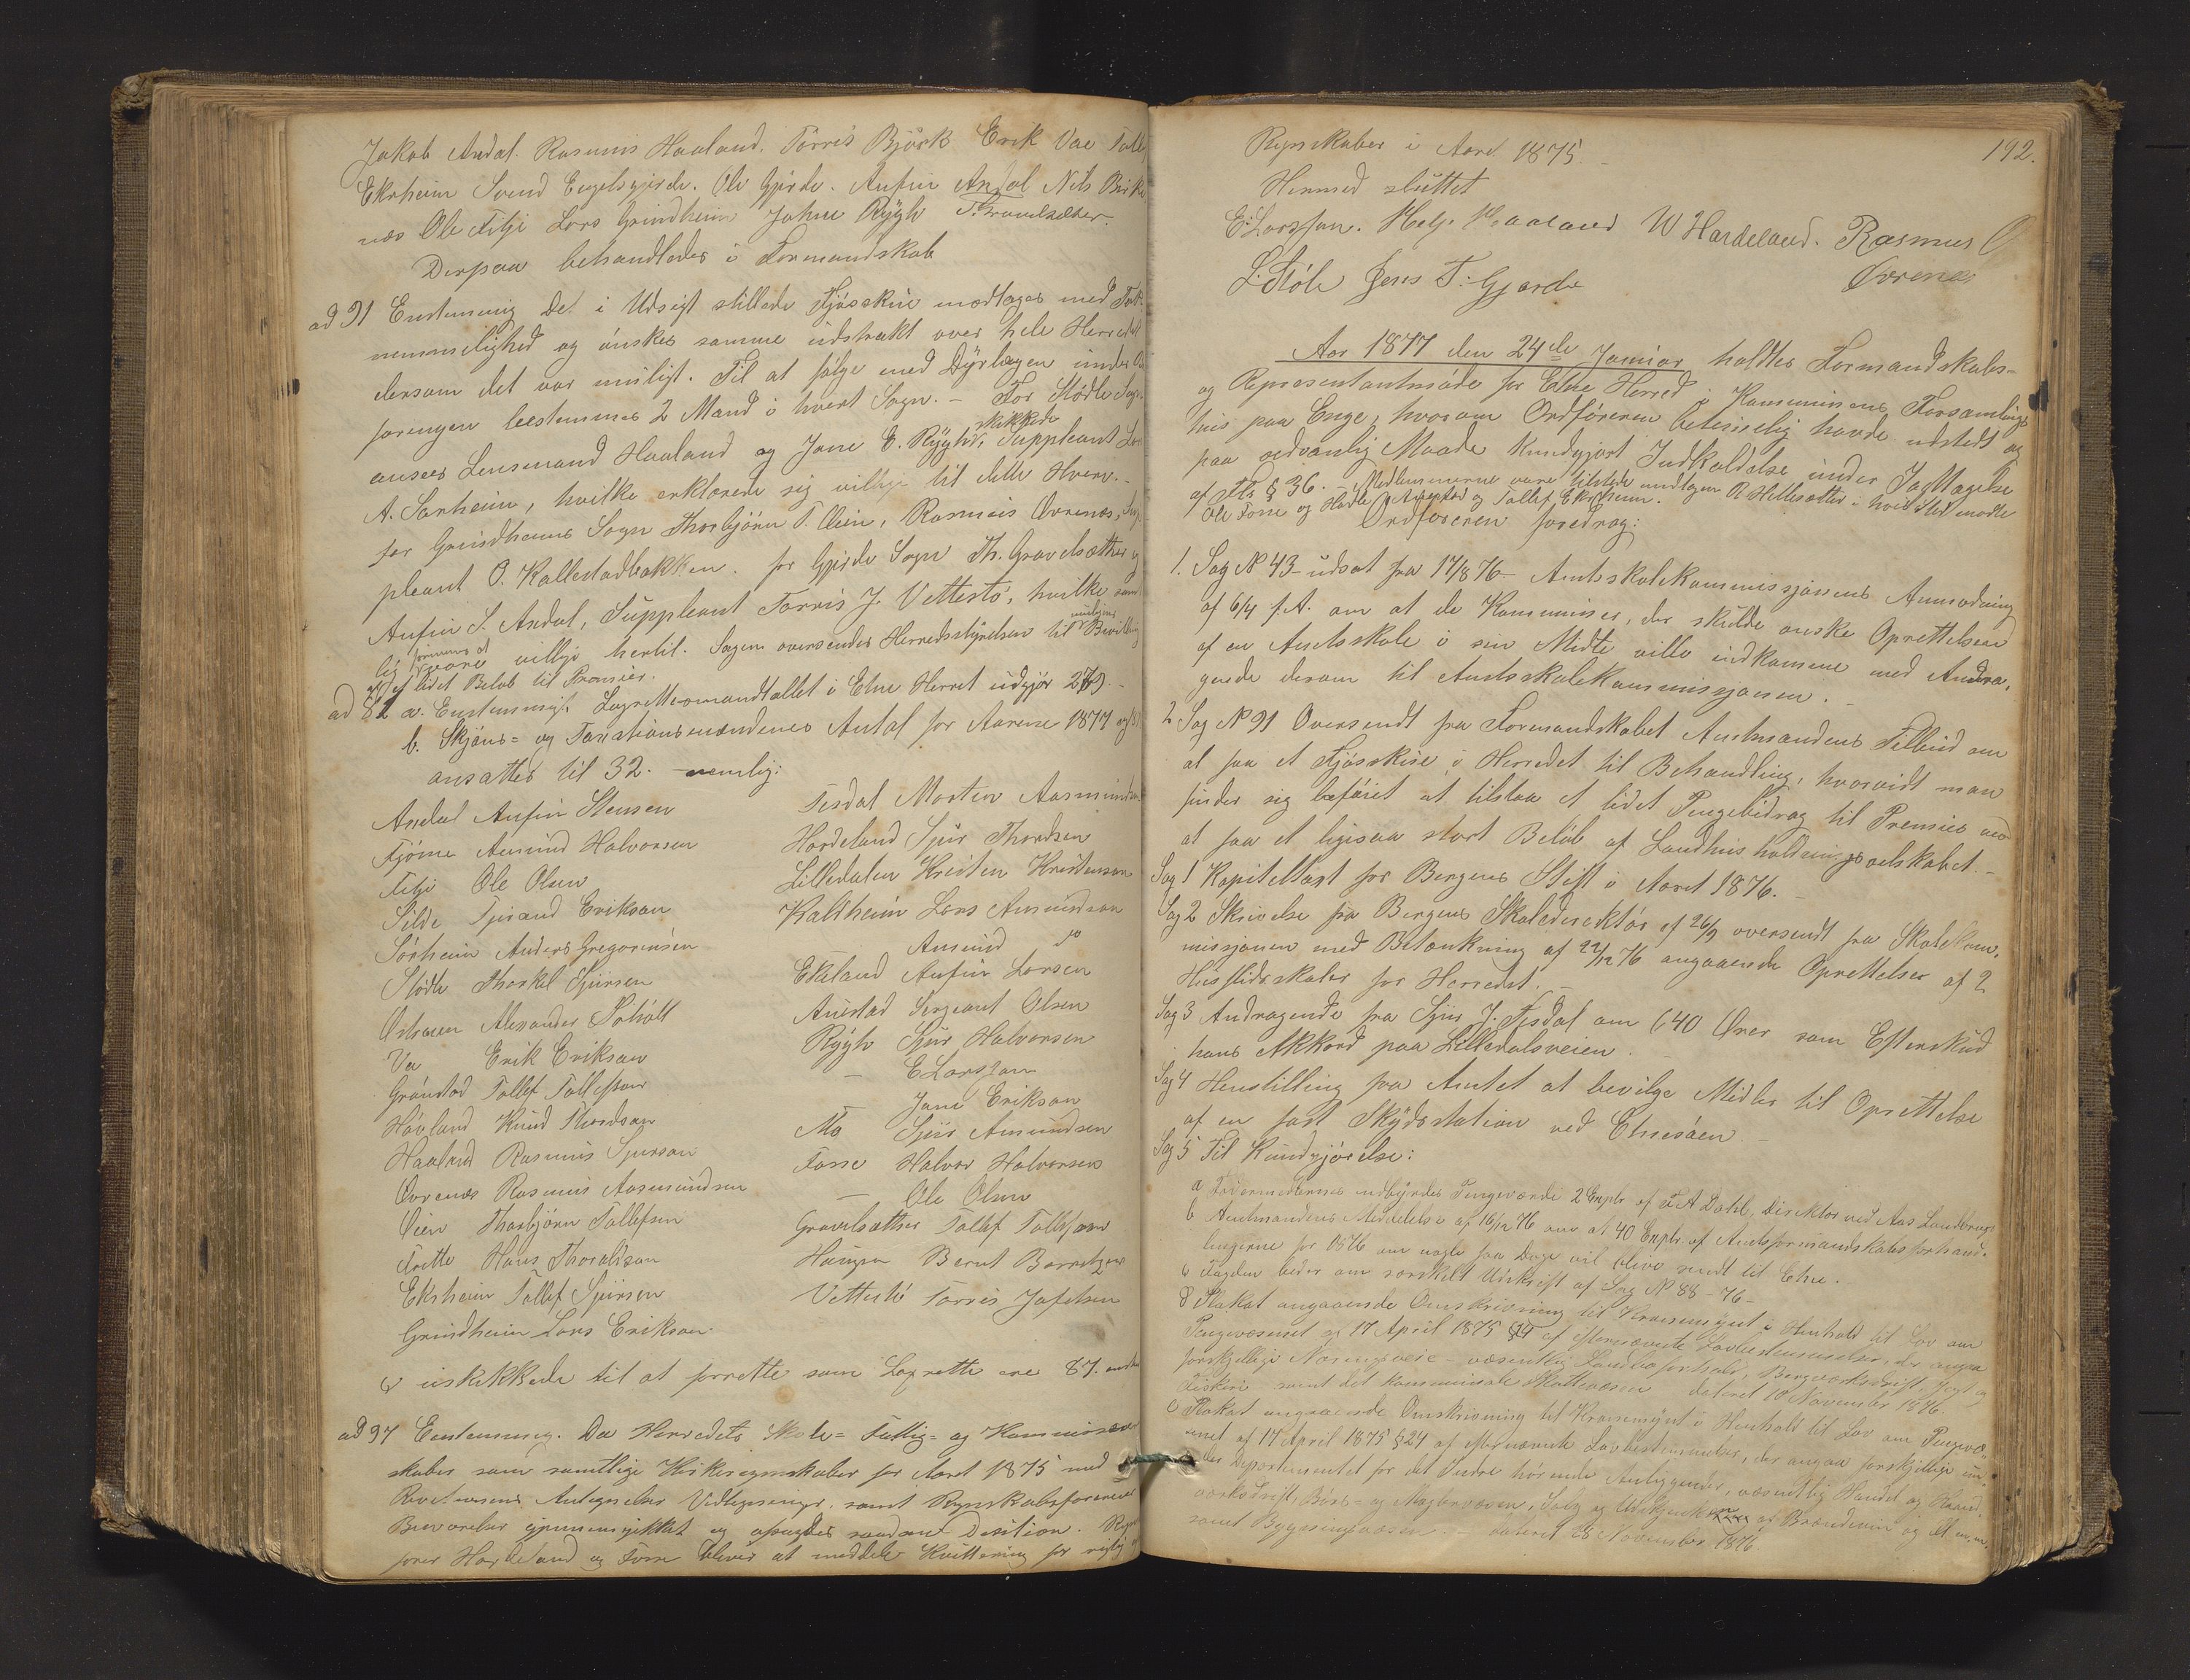 Jakob Andal. Rasmus Haaland. Törris Björk Erik Vae Tollef
Ekrheim Svend Engelsgjerde. Ole Gjerde. Anfin Andal Nils Birke
næs Ole Fitje Lars Grindheim Johne Rygh T. Gravelsæter
Derpaa behandledes i Formandskab
ad 91 Enstemmig Det i Udsigt stillede Fjösskue modtages med Tak-
nemmelighed og önskes samme udstrakt over hele Herredet
dersom det var muligt. Til at følge med Dyrlægen under
foreningen bestemmes 2 Mand i hvert Sogn. – For Stødle Sogn
skikkede
ansees Lensmand Haaland og Jone E. Rygh, Suppleant Lars
A. Sørheim, hvilke erklærede sig villige til dette Hverv. –
for Grindheims Sogn Thorbjörn T. Øien, Rasmus Øvrenæs, Sup-
pleant O. Kallestadbakken. for Gjerde Sogn Th. Gravelsæther og
Anfin S. Andal, Suppleant Törris J. Vettestø, hvilke
villige hertil. Sagen oversendes Herredsstyrelsen til Bevilling
af et lidet Beløb til Præmier.
ad 82 a. Enstemmigt Lagrettesmandtallet i Etne Herret udgjør 279. –
b. Skjøns= og Taxationsmændenes Antal for Aarene 1877 og
ansattes til 32. – nemlig:
Andal Anfin Stensen
Fjøsne Amund Halvorsen
Fitje Ole Olsen
Silde Sjovand Eriksen
Sørheim Anders Gregoriusen
Stødle Thorkel Sjursen
Østreim Alexander Solhøll
Va Erik Eriksen
Grønstad Tollef Tollefsen
Høvland Knud Thordsen
Haaland Rasmus Sjursen
Øvrenæs Rasmus Aasmundsen
Øien Thorbjörn Tollefsen
Frette Hans Thoraldsen
Ekrheim Tollef Sjursen
Grindheim Lars Eriksen
Tesdal Morten Aasmundsen
Hardeland Sjur Thordsen
Lilledalen Kristen Kristensen
Kaltheim Lars Amundsen
Amund do
Ekeland Anfin Larsen
Austad Sergeant Olsen
Rygh Sjur Halvorsen
– E Larssen
– Jone Eriksen
Mo Sjur Amundsen
Fosse Halvor Halvorsen
– Ole Olsen
Gravelsæther Tollef Tollefsen
Haugen Bernt Berntsen
Vettestø Törris Jofetsen
c uskikkede til at forrette som Lagrette ere 87.
ad 97 Enstemmig. Da Herredets Skole= Fattig= og Kommuneregn-
skaber samt samtlige Kirkeregnskaber for Aaret 1875 med
Revisionens Antegnelser Vedtegninger samt Regnskabsførernes
Besvarelser gjennemgikkes og afsagdes saadan Desition.
fører Hardeland og Fosse bliver at meddele Kvittering for rigtig
192.
Regnskaber i Aaret 1875.
Hermed sluttet
E. Larssen. Helge Haaland W Hardeland. Rasmus
Øvrenæs
L. Støle Jens T. Gjerde
Aar 1877 den 24de Januar holdtes Formandskabs-
og Representantmøde for Etne Herred i Kommunens Forsamlings
hus paa Enge, hvorom Ordføreren betimelig havde udstedt og
paa sedvanlig Maade kundgjort Indkaldelse under Iagttagelse
af Fls § 36. – Medlemmerne vare tilstede undtagen R Hellesætter i hvis Sted mødte
Ole Fosse og Austad og Tollef Ekrheim.
Ordføreren foredrog:
1. Sag No 43 – udsat fra 17/8 76 – Amtsskolekommissjonens Anmodning
af 6/4 f.A. om at de Kommuner, der skulde ønske Oprettelsen
af en Amtsskole i sin Midte ville indkomme med Andra-
gende derom til Amtsskolekommissjonen. –
2 Sag No 91 Oversendt fra Formandskabet Amtmandens Tilbud om
at faa et Fjøsskue i Herredet til Behandling, hvorvidt man
finder sig beføiet at tilstaa et lidet Pengebidrag til Premier
at faa et ligesaa stort Beløb af Landhusholdningsselskabet. –
Sag 1 Kapitelstaxt for Bergens Stift i Aaret 1876. –
Sag 2 Skrivelse fra Bergens Skoledirecktør af 26/9 oversendt fra Skolekom-
missjonen med Betænkning af 22/12 76 angaaende Oprettelser af 2
Husflidsskoler for Herredet. –
Sag 3 Andragende fra Sjur J. Tesdal om 640 Ører som Efterskud
hans Akkord paa Lilledalsveien. –
Sag 4 Henstilling fra Amtet at bevilge Midler til Oprettelse
af en fast Skydsstation ved Etnesøen –
Sag 5 Til Kundgjørelse:
a Fodermidlernes indbyrdes Pengeværdi 2 Explr. af F A Dahl, Direktør ved Aas Landbrugs
b Amtmandens Meddelelse af 16/12 76 om at 40 Explr. af Amtsformandskabsforhand-
lingerne for 1876 om nogle faa Dage vil blive sendt til Etne. –
c Fogden beder om særskilt Udskrift af Sag No 88 – 76 –
d Plakat angaaende Omskrivning til Kronemynt i Henhold til Lov om
Pengevæsenet af 17 April 1875 §24 af efternævnte Lovbestemmelser, der angaa
forskjellige Næringsveie – væsentlig Landboforhold, Bergværksdrift, Jagt og
Fiskeri – samt det kommunale Skattevæsen dateret 10 November 1876.
e Plakat angaaende Omskrivning til Kronemynt i Henhold til Lov om Pengevæ-
senet af 17 April 1875 §24 af efternævnte Lovbestemmelser, der angaa forskjellige un-
der Departementet for det Indre hørende Anliggender, væsentlig Handel og Haand-
værksdrift, Børs- og Mæglervæsen, Salg og Udskjænkning af Brændevin og Øl m.m.
samt Bygningsvæsen. – dateret 28 November 1876.